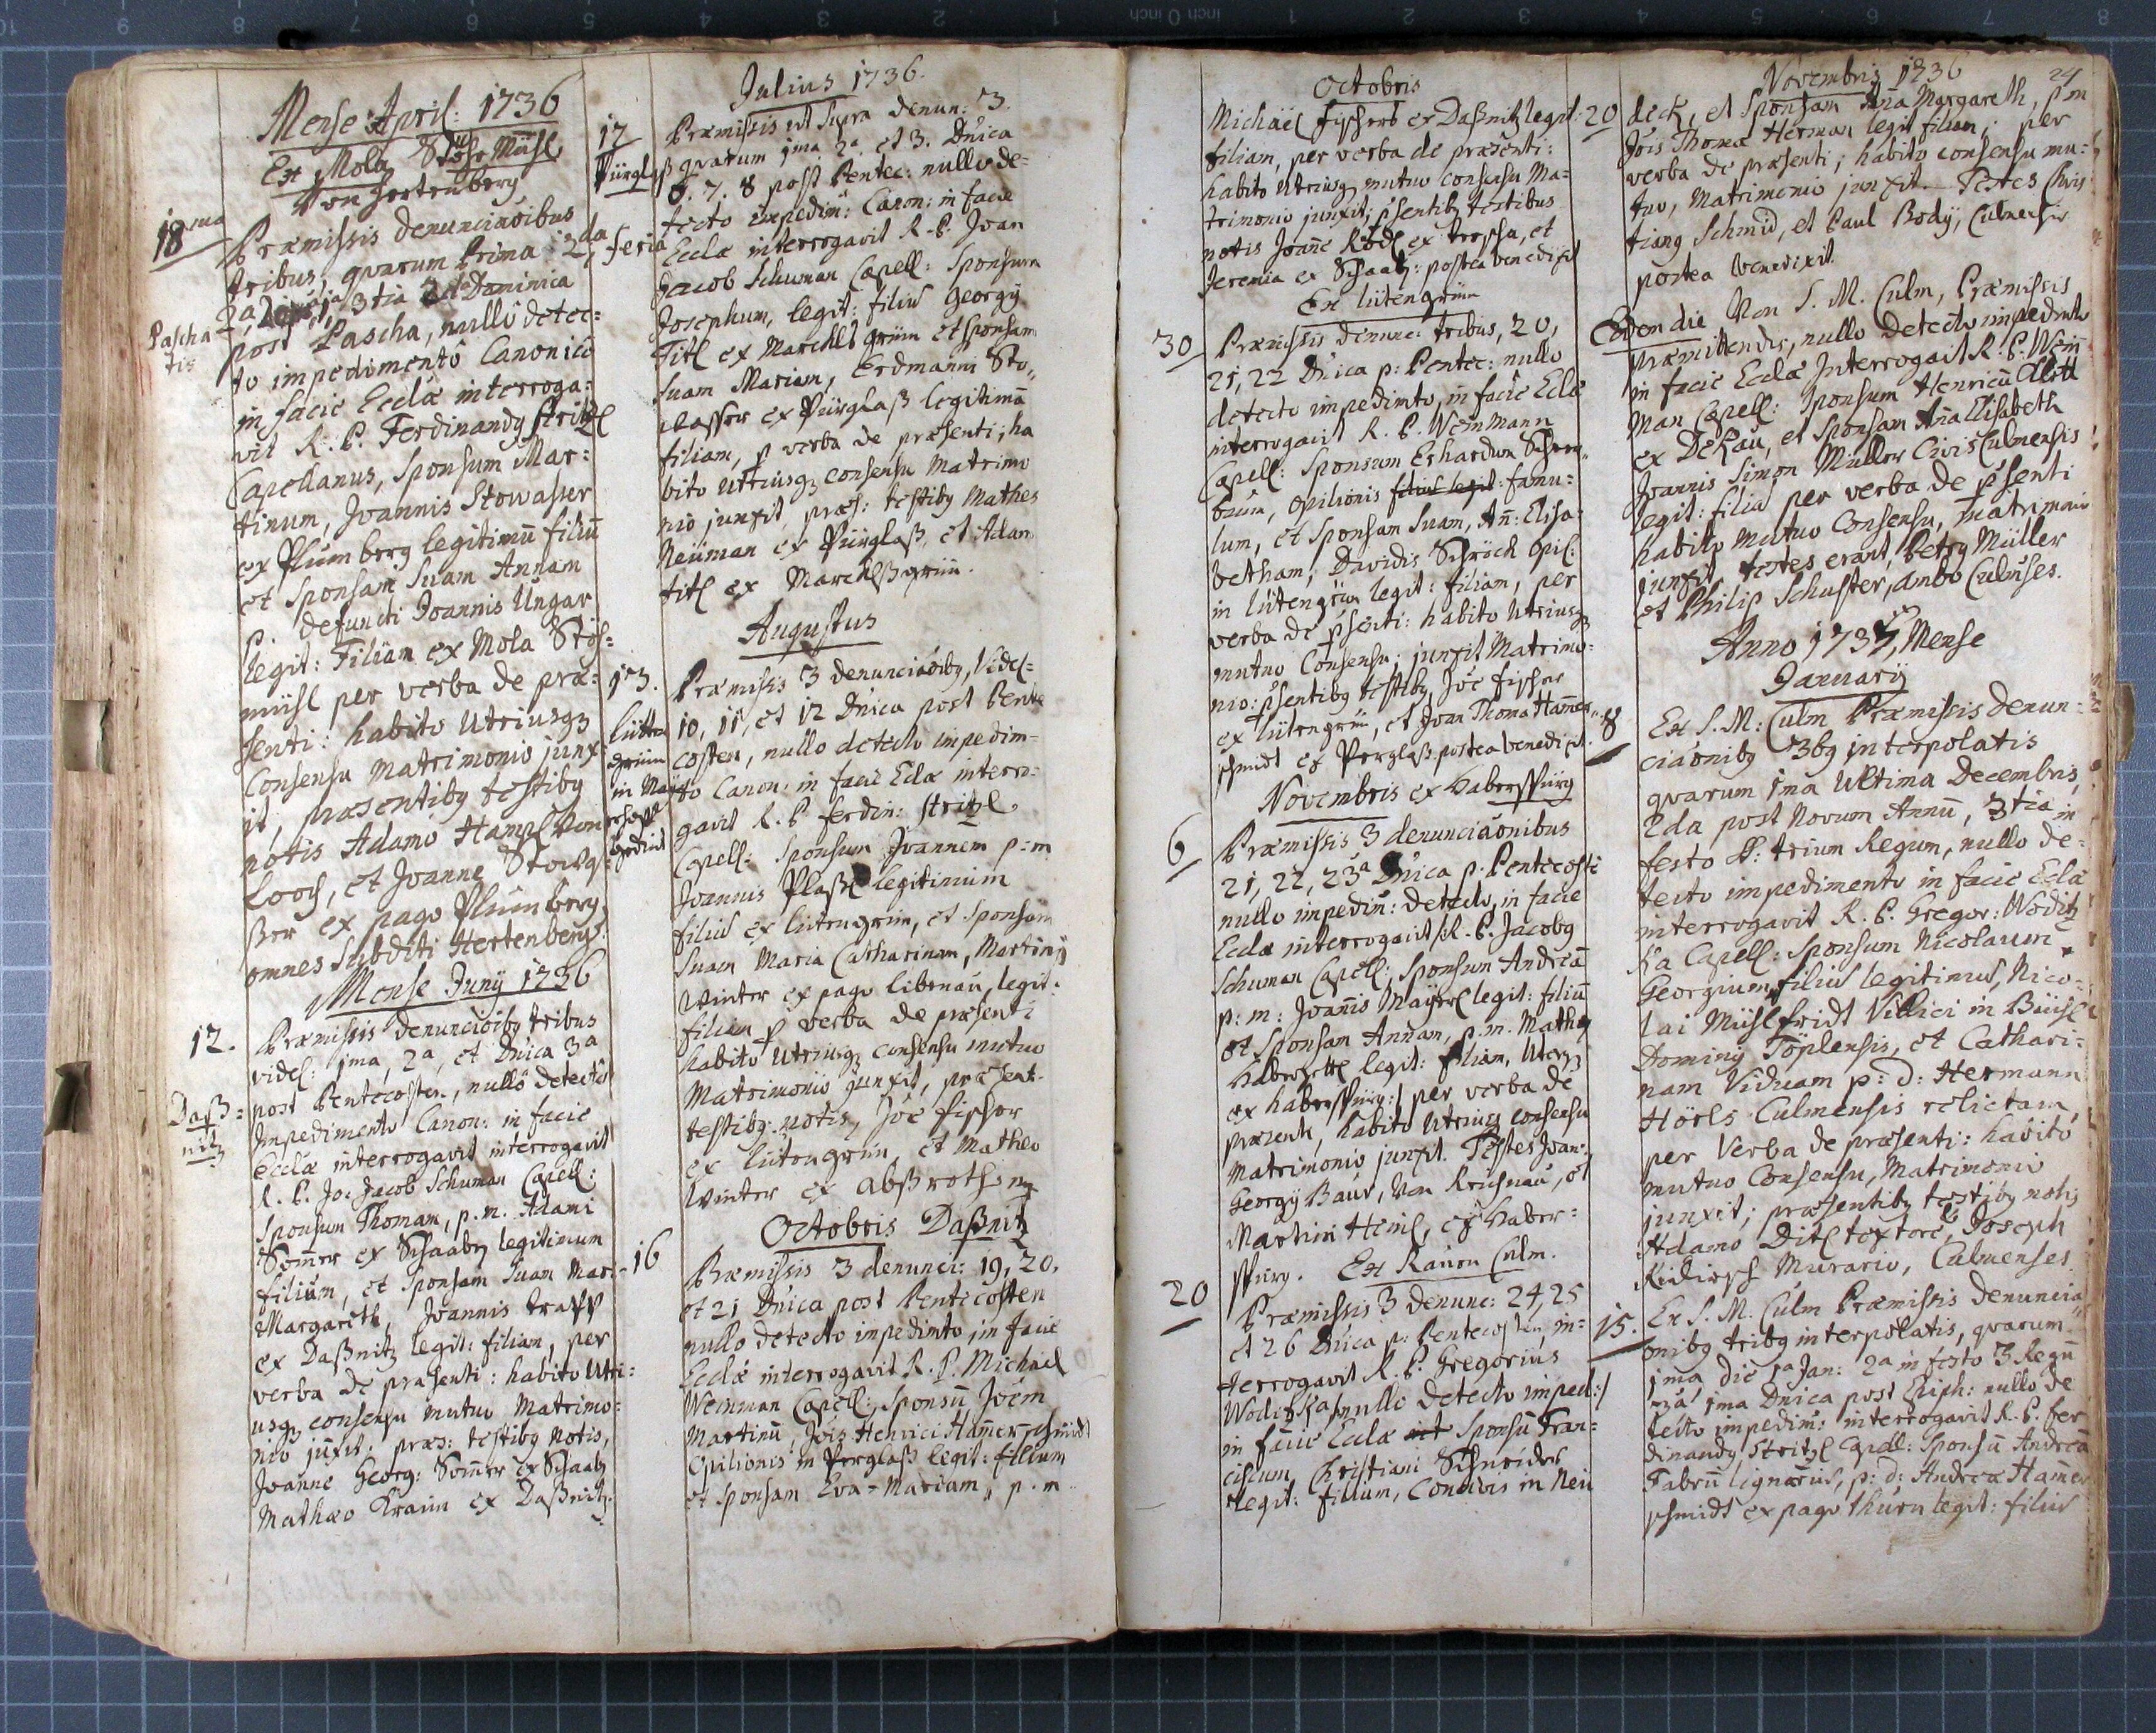 Mense April: 1736
Ex Mola Stöhr Mühl
Von Hertenberg
18
Praemissis denunciaoibus
tribus, quarum Prima 2da feria
Pascha
tis
2a, 3tia Dominica
post Pascha, nullo detec=
to impedimento Canonico
in facie Eccláe interroga=
vit R. P. Ferdinandq Stritzl
Capellanus, Sponsum Mar=
tinum, Joannis Stowasser
ex Plumberg legitimū filiū
et Sponsam Suam Annam
P. defuncti Joannis Ungar
legit: Filiam ex Mola Stöh=
mühl per verba de prae=
senti: habito Utriusq
Consensu Matrimonio junx=
it, praesentibq testibq
notis Adamo Hampl Von
Looch, et Joanne Stowa=
sser ex pago Plumberg,
omnes Subditi Hertenberg:
Mense Juny 1736
12.
Praemissis denunciōibq tribus
videl: 1ma, 2a, et Dnica 3a
Daß=
nitz
post Pentecosten, nullo detecto
Impedimento Canon: in facie
Eccláe interrogavit interrogavit
R. P. Jo: Jacob Schuman Capell:
Sponsum Thomam, p. m. Adami
Som̄er ex Schaabq legitimum
filium, et Sponsam Suam Mar:
Margareth, Joannis
ex Daßnitz legit: filiam, per
verba de praesenti: habito Utri=
usq consensu mutuo Matrimo=
nio jūxit: praes: testibq notis,
Joanne Georg: Som̄er ex Schaab
Mathaeo Kraun ex Daßnitz.
Julius 1736.
17
Pürglaß
Praemissis ut Supra denun: 3.
quarum 1ma 2a et 3. Dnica
6. 7. 8 post Pentec: nullo de=
tecto impedim: Canon: in facie
Ecclae interrogavit R. P. Joan
Jacob Schuman Capell: Sponsum
Josephum, legit: filiū Georgy
Titl ex Marckls grün et Sponsam
Suam Mariam, Erdmanni Sto=
wasser ex Pürglaß legitimā
filiam, p verba de praesenti; ha
bito Utriusq consensu Matrimo
nio junxit, praes: testibq Mathes
Neüman ex Pürglaß, et Adam
titl ex Marcklßgrün.
Augustus
13.
Praemissis 3 denunciaōibq, Videl=
10, 11, et 12 Dnica post Pente
costen, nullo detecto impedim=
to Canon: in facie Eclae interro=
gavit R. P. Ferdin: Stritzl
Capell: Sponsum Joannem p: m
Joannis Plaßl legitimum
filiū ex lütengrün, et Sponsam
Suam Maria Catharinam, Martiny
Winter ex pago libenau, legit:
filiam p verba de praesenti
habito Utriusq consensu mutuo
Matrimonio junxit, praesent.
testibq notis, Joē fischer
ex lütengrün, et Matheo
Winter ex abßroth
Octobris Daßnitz
16
Praemissis 3 denunci: 19, 20,
et 21 Dnica post Pentecosten
nullo detecto impedimto in facie
Ecclae interrogavit R. P. Michael
Weinman Capell: Sponsū Joēm
Martinū, Jöis Henrici Ham̄erschmidt
Opilionis in Perglaß legit: filium
et Sponsam Eva=Mariam, p. m.
Octobris
Michael fischers ex Daßnitz legit:
filiam, per verba de praesenti:
habito Utriusq mutuo consensu Ma=
trimonio junxit; psentibq testibus
notis Joanne Rödl ex , et
Jeremia ex Schaab: postea benedixit
Ex lütengrün
30
Praemissis denunc: tribus, 20,
21, 22 Dnica p: Pentec: nullo
detecto impedimto, in facie Eclae
interrogavit R. P. Weinmann
Capell: Sponsum Erhardum
, Opilionis filiū legit: famu=
lum, et Sponsam Suam, An̄: Elisa=
betham, Davidis Schröck Opil:
in lütengrün legit: filiam, per
verba de psenti: habito Utriusq
mutuo Consensu; junxit Matrimo=
nio: psentibq testibq, Joē fischer
ex lütengrün, et Joan Thoma Ham̄er=
schmidt ex Perglaß. postea benedixit.
Novembris ex habersspürg
6
Praemissis 3 denunciaōnibus
21, 22, 23a Dnica p. Pentecoste
nullo impedim̄: detecto, in facie
Eccla interrogavit R. P. Jacobq
Schuman Capell: Sponsum Andreā
p: m: Joannis Mayerl legit: filiū
et Sponsam Annam, p. m. Mathey
legit: filiam, Uterq
ex habersspürg: per verba de
praesenti, habito Utriusq consensu
Matrimonio junxit. Testes Joan:
Georgy Baur, Von Reichnau, et
Martin Heinl, ex Haber=
spürg. Ex Rauon Culm.
20
Praemissis 3 denunc: 24, 25
et 26 Dnica p: Pentecosten, in=
terrogavit R. P. Gregorius
Woditzka, nullo detecto imped:
in facie Eclae Sponsū Fran=
ciscum, Christiani Schneider
legit: filium, Concivis in Neu
Novembris 1736
24
20
deck, et Sponsam Aña Margareth, p m
Jois Thomae Herman legit filiam; per
verba de praesenti; habito consensu mu=
tuo, Matrimonio junxit. Testes Chris
tianq Schmid, et Paul Body, Culmensis
postea benedixit.
Eodem die Von S. M. Culm, Praemissis
praemittendis, nullo detecto impedimto
in facie Ecclae Interrogavit R. P. Wein
man Capell: Sponsum Henricū
ex , et Sponsam Aña Elisabeth
Joannis Simon Müller Civis Culmensis
legit: filia per verba de psenti
habito mutuo Consensu, matrimonio
junxit, testes erant, Petrq Müller
et Philip Schuster, ambo Culmēses.
Anno 1737, Mense
January
8
Ex S. M. Culm Praemissis denun=
ciaōnibq 3bq interpolatis
quarum 1ma Ultima Decembris,
2da post Novum Annū, 3tia in
festo SS: trium Regum, nullo de=
tecto impedimento in facie Eclae
interrogavit R. P. Gregor: Woditz
ka Capell: Sponsum Nicolaum
Georgium filius legitimus, Nico=
lai Mühlfridt Villici in
Töplensis, et Cathari=
nam Viduam p: d: Hermann
Hörls Culmensis relictam,
per Verba de praesenti: habito
mutuo Consensu, Matrimonio
junxit; praesentibq testibq notis
Adamo Ditl textore, Joseph
Murario, Culmenses.
15.
Ex S. M. Culm Praemissis denuncia=
onibq tribq interpolatis, quarum
1ma die 1a Jan: 2a in festo 3 Regū
1ma Dnica post Epiph: nullo de
tecto impedim̄: interrogavit R. P. Fer
dinandq Stritzl Capell: Sponsū Andreā
Fabrū lignariū, p: d: Andreae Ham̄er
schmidt ex pago thurn legit: filiū